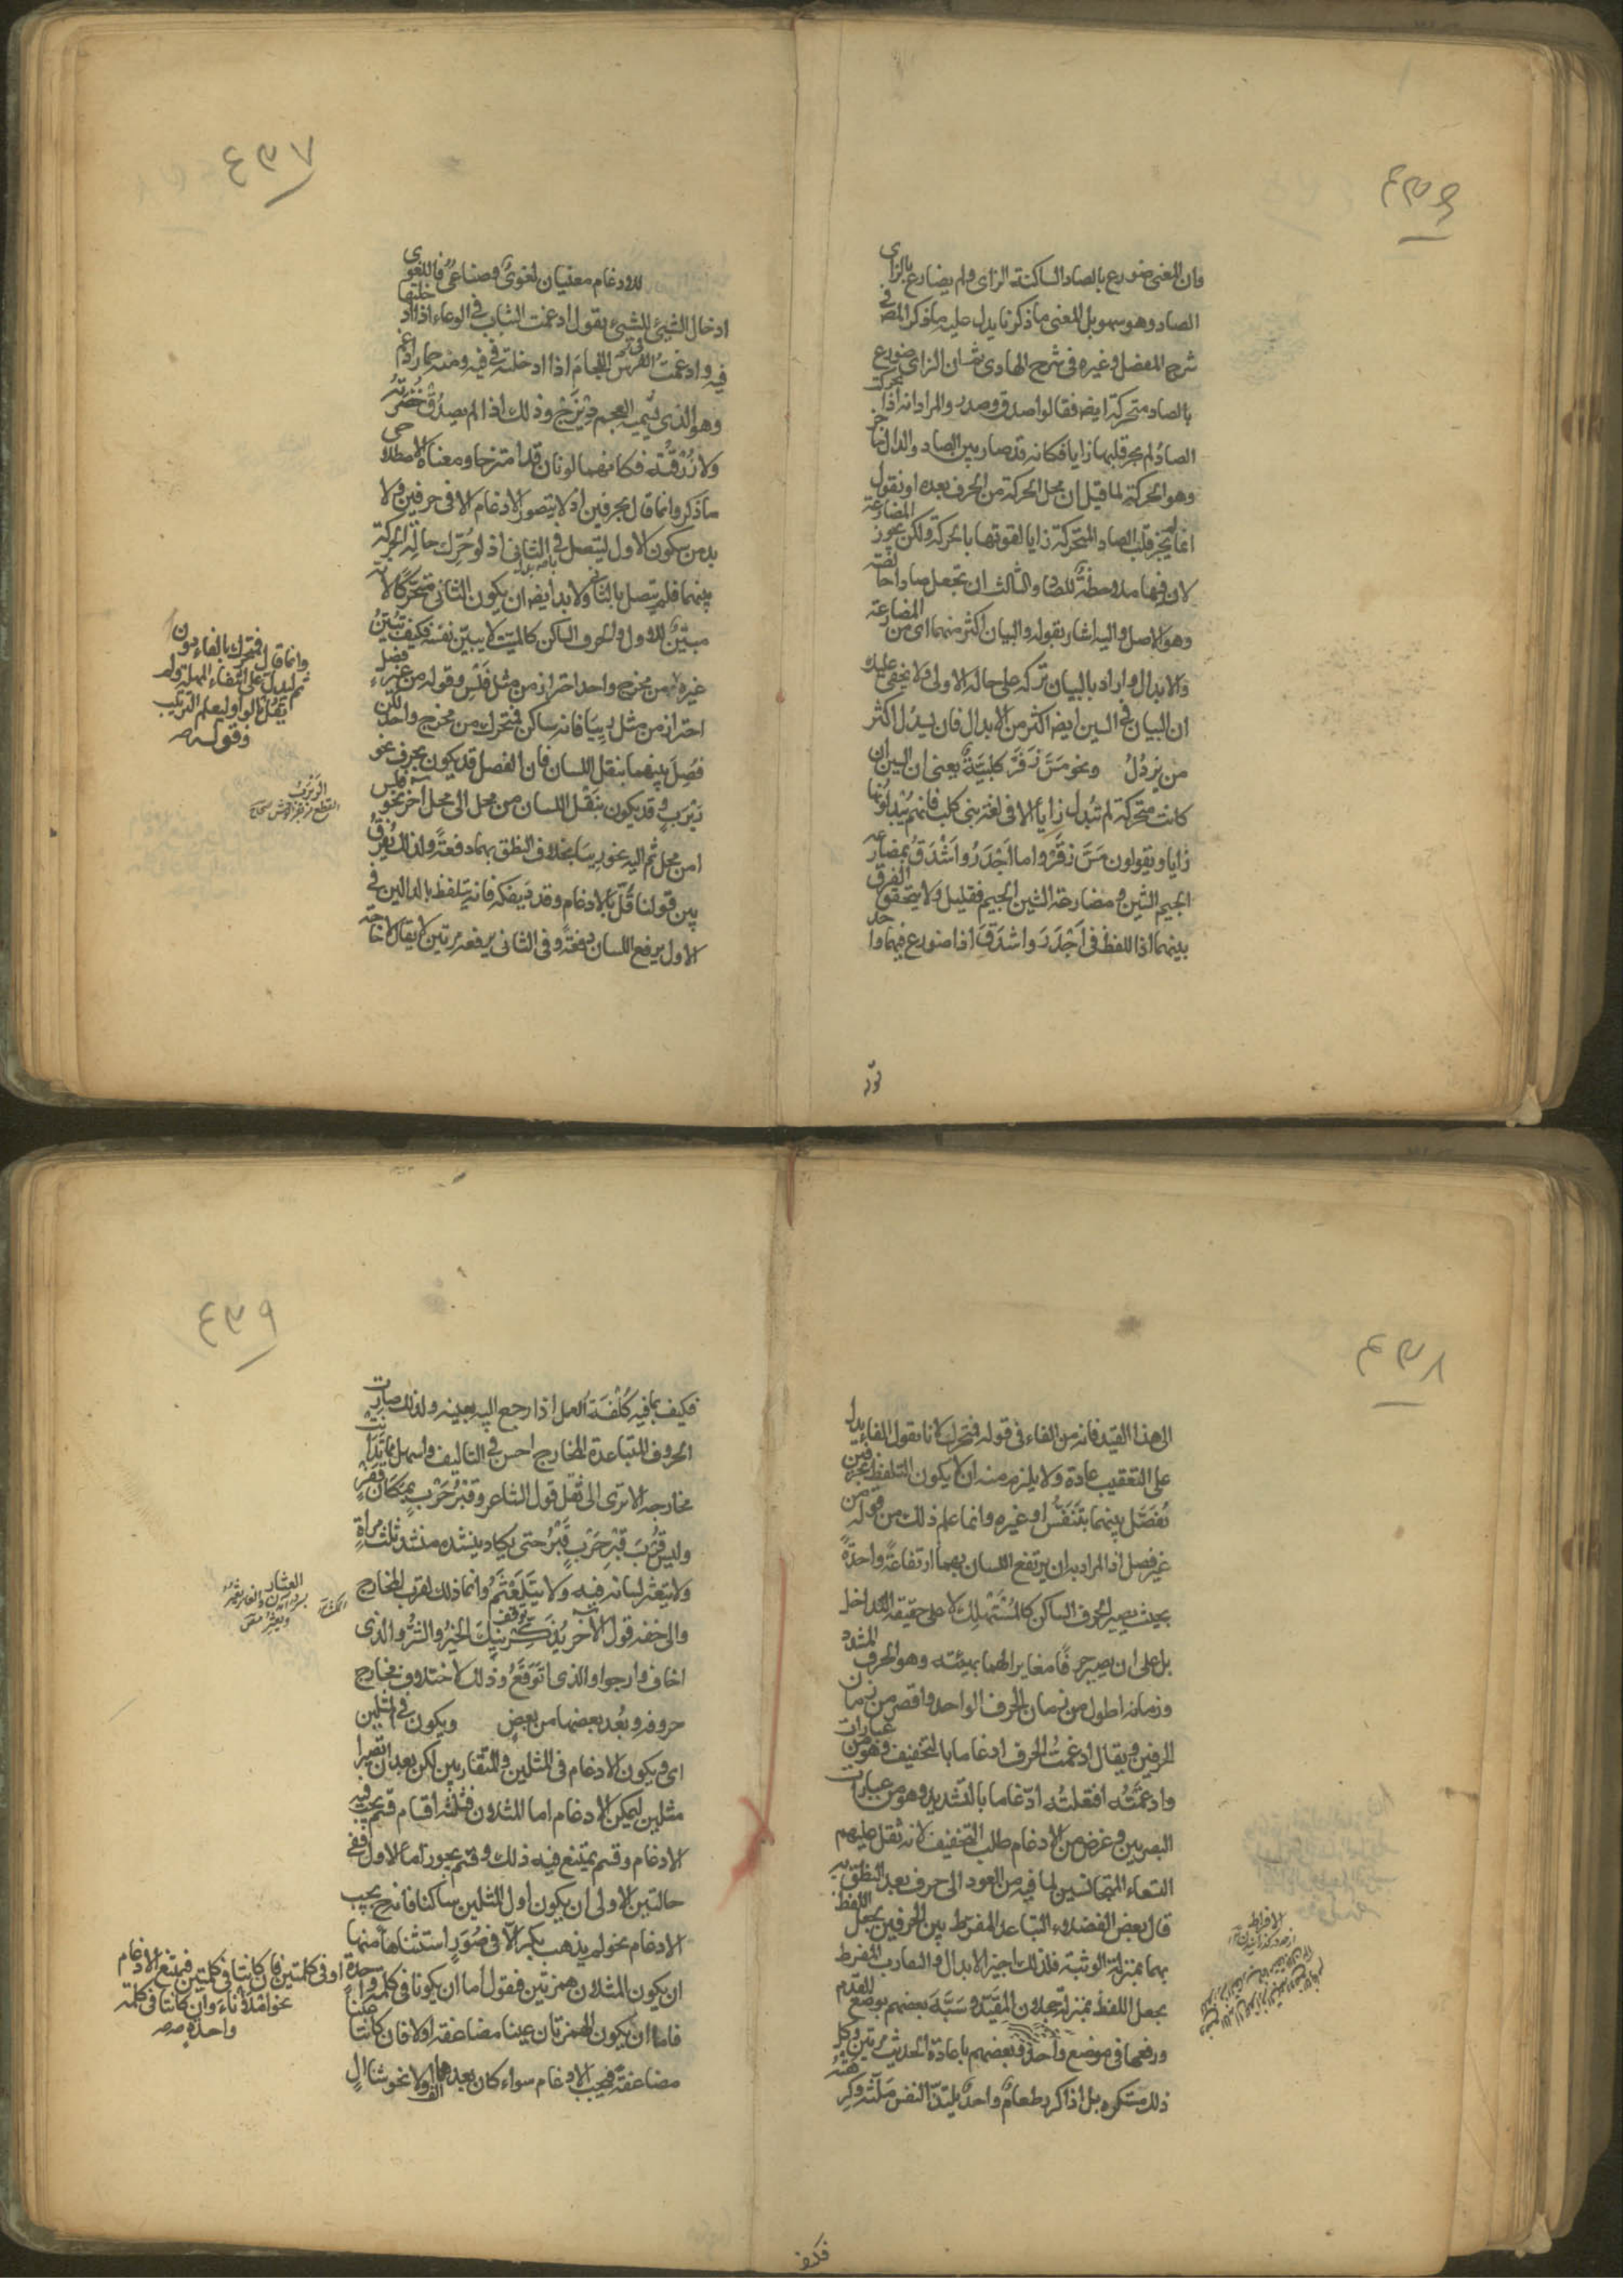 ٤٣٦
فان المعنى ضورع بالصاد الساكنة الزاى ولم يضارع بالزاى
الصاد وهو سهو بل المعنى ما ذكرنا يدل عليه ما ذكر المص فى
شرح المفصل وغيره فى شرح الهادى ثم ان الزاى ضورع
بالصاد متحركة ايضا فقالوا صدق وصدر والمراد انه اذا تحرك
الصاد لم يجز قلبها زايا فكانه قد صار بين الصاد والدال حاجز
وهو الحركة لما قيل ان محل الحركة من الحرف بعده او نقول
انما لم يجز قلب الصاد المتحركة زايا لقوتها بالحركة ولكن يجوز المضارعة
لان فيها ملاحظة للصاد والثالث ان تجعل صادا خالصة
وهو الاصل واليه اشار بقوله والبيان اكثر منهما اى من المضارعة
والابدال واراد بالبيان تركه على حاله الاولى ولا يخفى عليك
ان البيان فى السين ايضا اكثر من الابدال فان يسدل اكثر
من يزدل ونحو مس زقر كلبية يعنى ان السين ان
كانت متحركة لم تبدل زايا الا فى لغة بنى كلب فانهم يبدلونها
زايا ويقولون مس زقر واما اجدر واشدق بمضارعة
الجيم الشين ومضارعة الشين الجيم فقليل ولا يتحقق الفرق
بينهما اذا اللفظ فى اجدر واشدق اذا ضورع فيهما واحد
٤٣٧
للادغام معنيان لغوى وصناعى فاللغوى
ادخال الشيئ للشيئ يقول ادغمت الثياب فى الوعاء اذا ادخلتها
فيه وادغمت الفرس اللجام اذا ادخلته فى فيه ومنه حمار ادغم
وهو الذى يسميه العجم ديزج وذلك اذا لم يصدق خضرته
ولا زرقته فكانهما لونان قد امتزجا ومعناه الاصطلاحى
ما ذكر وانما قال بحرفين اذ لا يتصور الادغام الا فى حرفين ولا
بد من سكون الاول ليتصل فى الثانى اذ لو حرك حالت الحركة
بينهما فلم يتصل بالثانى ولا بد ايضا ان يكون الثانى متحركا لانه
مبين للاول والحرف الساكن كالميت لا يبين نفسه فكيف تبين
غيره من مخرج واحد احتراز من مثل فلس وقوله من غير فصل
احتراز من مثل رييا فانه ساكن فمتحرك من مخرج واحد لكن
فصل بينهما بنقل اللسان فان الفصل قد يكون بحرف نحو
زيرب وقد يكون بنقل اللسان من محل الى محل اخر نحو فلس
امن محل ثم اليه نحو رييا بخلاف النطق بهما دفعة ولذلك يفرق
بين قولنا قل بالادغام وقدد بفكه فانه يتلفظ بالدالين فى
الاول يرفع اللسان دفعة وفى الثانى يرفعه مرتين لا يقال لا حاجة
وانما قال فتحرك بالفاء دون
ثم ليدل على انتفاء المهلة ولم
يقل بالواو ليعلم الترتيب
وقوله
٤٣٨
الى هذا القيد فانه من الفاء فى قوله فتحرك لانا نقول الفاء يدل
على التعقيب عادة ولا يلزم منه ان لا يكون التلفظ بحرفين
تفصل بينهما بتنفس او غيره وانما علم ذلك من قوله من
غير فصل اذ المراد به ان يرتفع اللسان بهما ارتفاعة واحدة
بحيث يصير الحرف الساكن كالمستهلك لا على حقيقة التداخل
بل على ان يصير حرفا مغايرا لهما بهيئته وهو الحرف المشدد
وزمانه اطول من زمان الحرف الواحد واقصر من زمان
الحرفين ويقال ادغمت الحرف ادغاما بالتخفيف وهو من عبارات
وادغمته افتعلته ادغاما بالتشديد وهو من عبارات
البصريين وغرض من الادغام طلب التخفيف لانه ثقل عليهم
التقاء المتجانسين لما فيه من العود الى حرف بعد النطق به
قال بعض الفضلاء التباعد المفرط بين الحرفين يجعل اللفظ
بهما بمنزلة الوثبة فلذلك اجيز الابدال والتقارب المفرط
يجعل اللفظ بمنزلة حجلان المقيد وشبه بعضهم بوضع القدم
ورفعها فى موضع واحد وبعضهم باعادة الحديث مرتين وكل
ذلك مستكره بل اذا كرر طعام واحد يلتذ النفس ملته وكرهته
٤٣٩
فكيف بما فيه كلفة العمل اذا رجع اليه بعينه ولذلك صارت
الحروف المتباعدة المخارج احسن فى التاليف واسهل مما تدانت
مخارجه الا ترى الى ثقل قول الشاعر وقبر حرب بمكان قفر
وليس قرب قبر حرب قبر حتى يكاد ينشده منشد ثلث مرات
ولا يتعثر لسانه فيه ولا يتلعثم وانما ذلك لقرب المخارج
والى خفة قول الاخر يذكرنيك الخير والشر والذى
اخاف وارجوا والذى اتوقع وذلك لاختلاف مخارج
حروفه وبعد بعضها من بعض ويكون فى المثلين
اى ويكون الادغام فى المثلين والمتقاربين لكن بعد ان تصيرا
مثلين ليمكن الادغام اما المثلان فثلثة اقسام قسم يجب فيه
الادغام وقسم يمتنع فيه ذلك وقسم يجوز اما الاول ففى
حالتين الاولى ان يكون اول المثلين ساكنا فانه ح يجب
الادغام نحو لم يذهب بكر الا فى صور استثناها منها
ان يكون المثلان همزتين فنقول اما ان يكونا فى كلمة واحدة
فاما ان يكون الهمزتان عينا مضاعفة اولا فان كانتا عينا
مضاعفة فيجب الادغام سواء كان بعدها الف اولا نحو سئال
او فى كلمتين فان كانتا فى كلمتين فيمتنع الادغام
نحو املأ اناء وان كانتا فى كلمة
واحدة